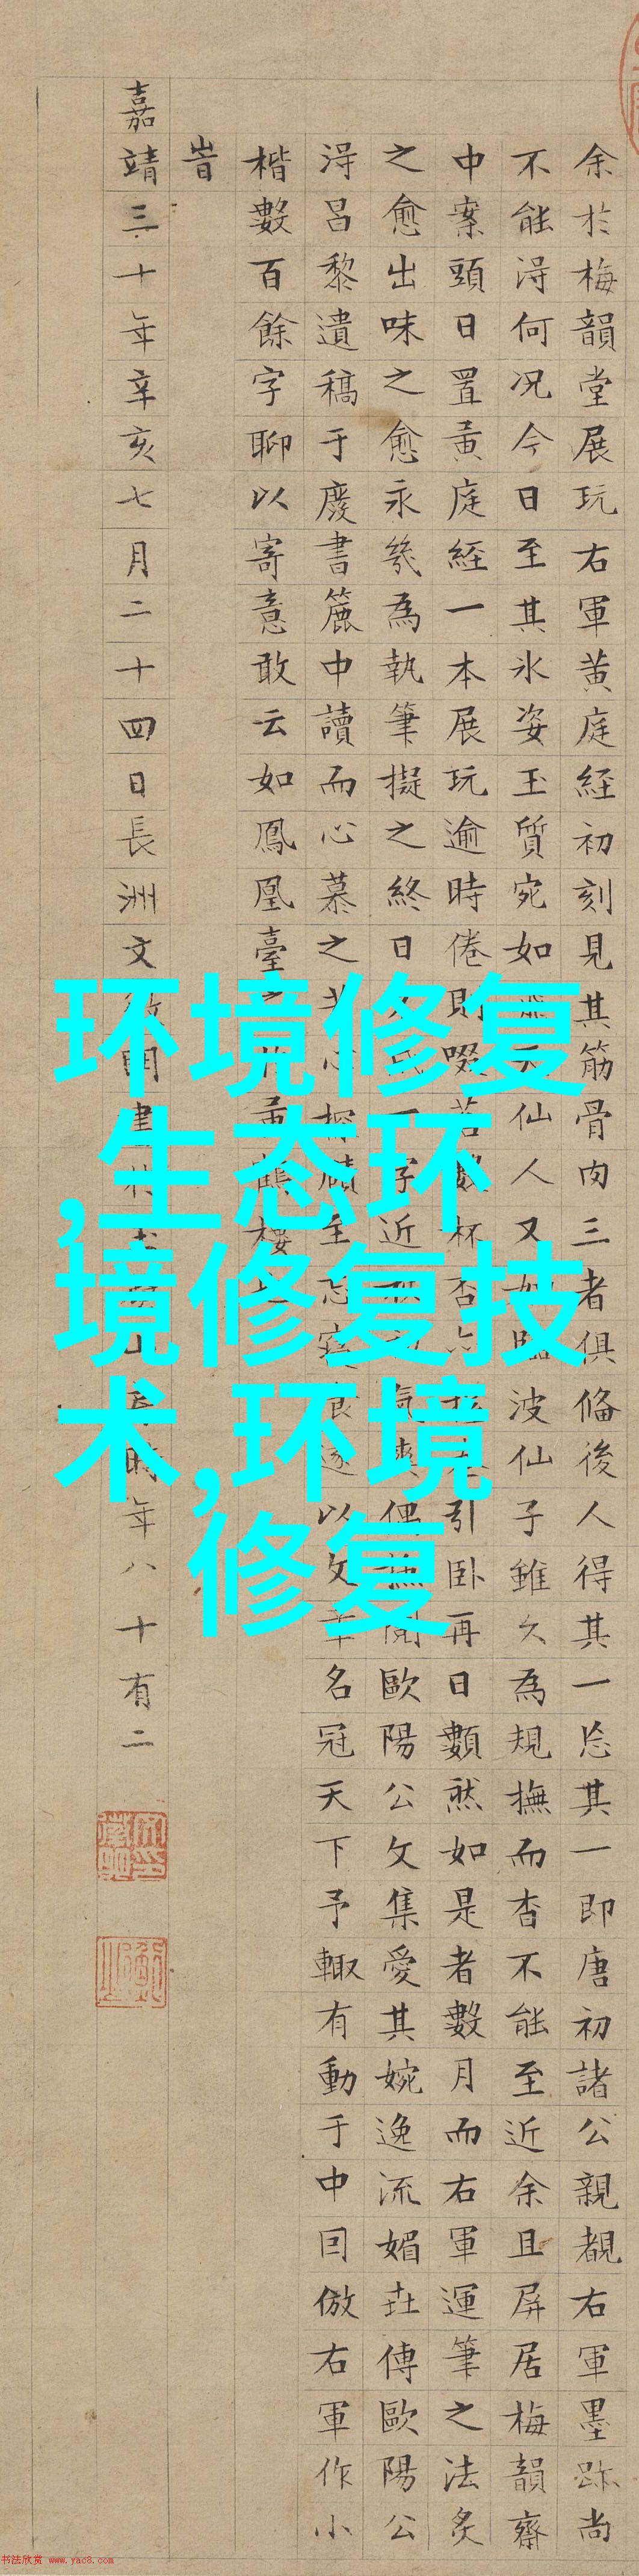 余於梅韻堂展玩右軍黄庭經初刻見其筋骨肉三者俱俻後人得其一忘其一即唐初諸公親覩右軍墨跡尚
不能淂何况今日至其氷姿玉質宛如仙人又如臨波仙子雖久為規撫而杳不能至近余且屏居梅韻齋
中案頭日置黄庭經一本展玩逾時倦則啜茗數杯否引卧再日數然如是者數月而右軍運筆之法炙
之愈出味之愈永羙為執筆擬之終日字近氣偶閲歐陽公文集愛其婉逸流媚㽵傳歐陽公
淂昌黎遺稿于廢書簏中讀而心慕之心探賾至忘寢食遂以文章名冠天下予輙有動于中囙倣右軍作小
楷數百餘字聊以寄意敢云如鳳凰臺黄鶴樓
旹
嘉靖三十年辛亥七月二十四日長洲文徵明書時年八十有二
环境修复
,生态环
境修复技
术,环境
修复
书法欣赏 www.yac8.com